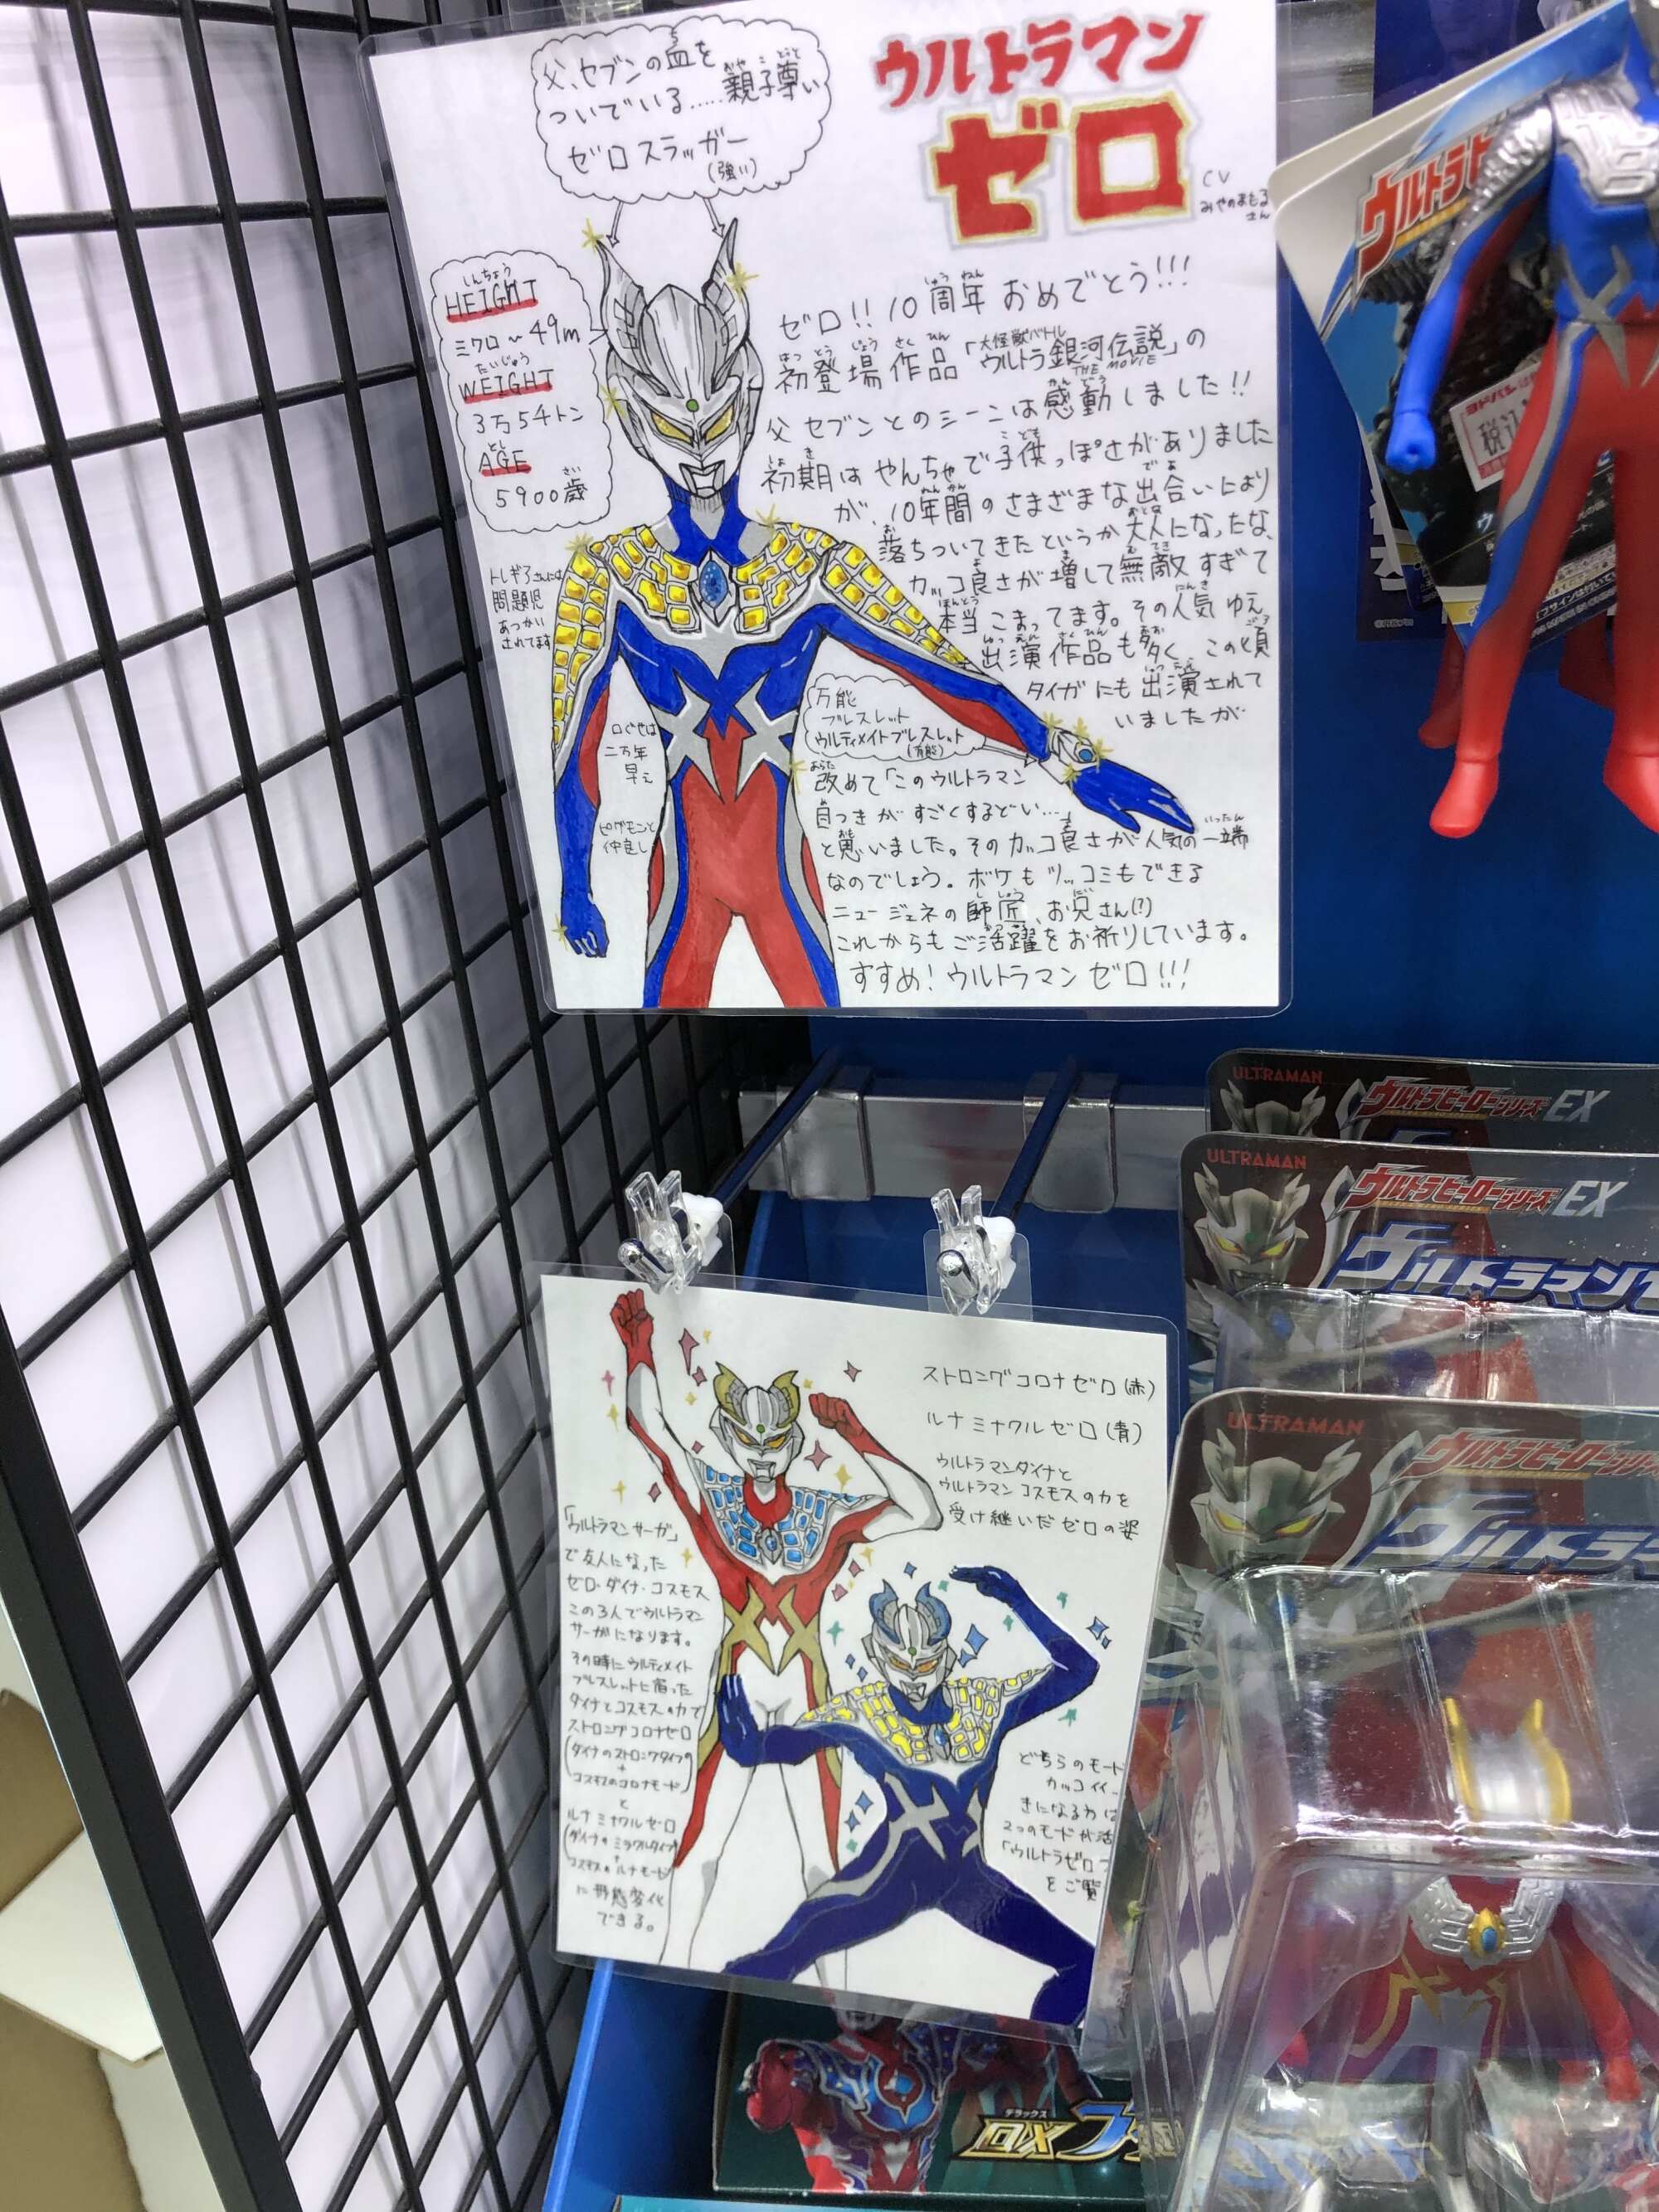 父、セブンの血を
ついでいる……親子尊い
ゼロスラッガー
(強い)
ウルトラマン
ゼロ
CV
みやのまもる
さん
しんちょう
HEIGHT
ミクロ〜49m
たいじゅう
WEIGHT
3万5千トン
とし
AGE
5900歳
トレギアさんには
問題児
あつかい
されてます
口ぐせは
二万年
早え
ピグモンと
仲良し
万能
ブレスレット
ウルティメイトブレスレット
(万能)
ゼロ!!10周年おめでとう!!!
初登場作品「大怪獣バトル
ウルトラ銀河伝説」の
THE MOVIE
父セブンとのシーンは感動しました!!
初期はやんちゃで子供っぽさがありました
が、10年間のさまざまな出合いにより
落ちついてきたというか大人になったな、
カッコ良さが増して無敵すぎて
本当こまってます。その人気ゆえ
出演作品も多く、この頃
タイガにも出演されて
いましたが
改めて「このウルトラマン
目つきがすごくするどい…
と思いました。そのカッコ良さが人気の一端
なのでしょう。ボケもツッコミもできる
ニュージェネの師匠、お兄さん(?)
これからもご活躍をお祈りしています。
すすめ!ウルトラマンゼロ!!!
ULTRAMAN
ウルトラヒーローシリーズEX
ULTRAMAN
ウルトラヒーローシリーズEX
ウルトラマン
ULTRAMAN
ウルトラヒーローシリーズ
ウルトラ
ストロングコロナゼロ(赤)
ルナミラクルゼロ(青)
ウルトラマンダイナと
ウルトラマンコスモスの力を
受け継いだゼロの姿
「ウルトラマンサーガ」
で友人になった
ゼロ・ダイナ・コスモス
この3人でウルトラマン
サーガになります。
その時にウルティメイト
ブレスレットに宿った
ダイナとコスモスの力で
ストロングコロナゼロ
(ダイナのストロングタイプの
+
コスモスのコロナモード)
と
ルナミラクルゼロ
(ダイナのミラクルタイプ
+
コスモスのルナモード)
に形態変化
できる。
どちらのモード
カッコイイ
きになる方は
2つのモードが活
「ウルトラゼロ
をご覧
デラックス
DX